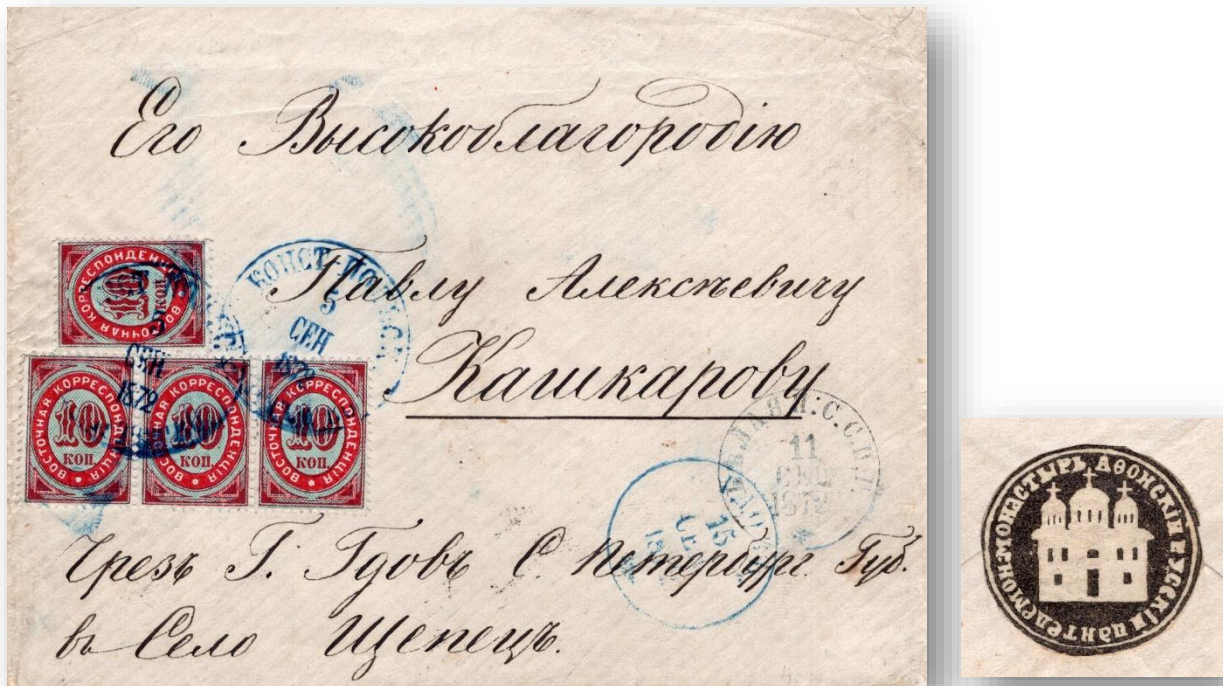 Его Высокоблагородію
Павлу Алексѣевичу
Кашкарову
Чрезъ Г. Гдовъ С. Петербург. Губ.
въ Село Щепецъ.
ВОСТОЧНАЯ КОРРЕСПОНДЕНЦІЯ
10
КОП.
ВОСТОЧНАЯ КОРРЕСПОНДЕНЦІЯ
10
КОП.
ВОСТОЧНАЯ КОРРЕСПОНДЕНЦІЯ
10
КОП.
ВОСТОЧНАЯ КОРРЕСПОНДЕНЦІЯ
10
КОП.
5
СЕН
1872
5
СЕН
1872
11
СЕН
1872
15
МОНАСТЫРЬ АѲОНСКІЙ РУССКІЙ ПАНТЕЛЕМОН